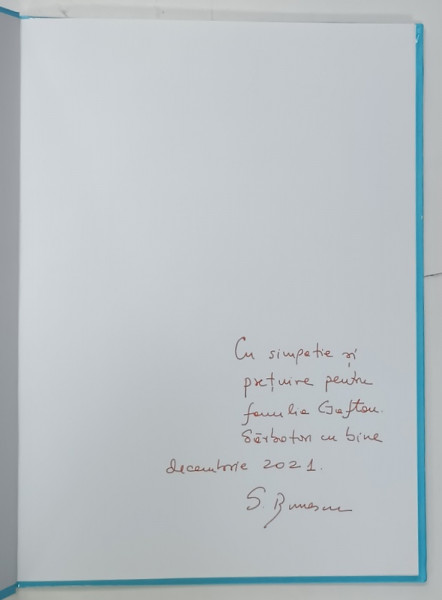 Cu simpatie și
prețuire pentru
familia Gafton.
Sărbători cu bine
decembrie 2021.
S.